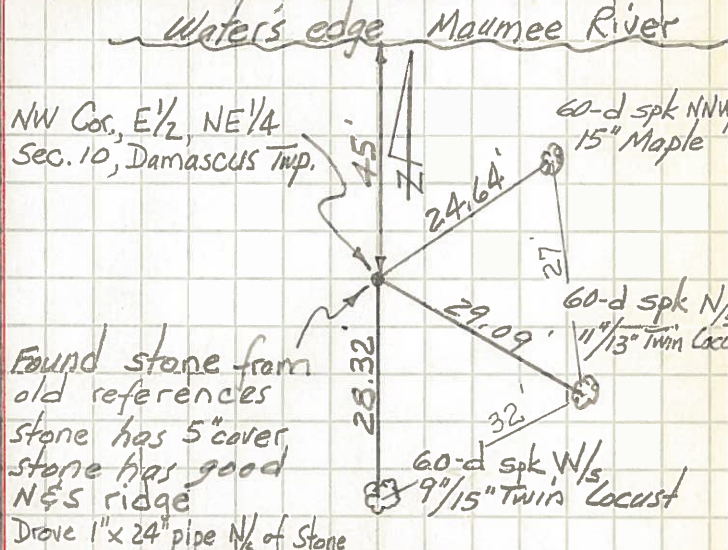 Water's edge Maumee River
NW Cor., E1/2, NE1/4
Sec. 10, Damascus Twp.
45'
N
60-d spk NNW
15" Maple
24.64'
27'
29.09'
60-d spk N/s
11"/13" Twin Locu
32'
28.32'
Found stone from
old references
stone has 5" cover,
stone has good
N&S ridge
Drove 1" x 24" pipe N/s of Stone
60-d spk W/s
9"/15" Twin Locust